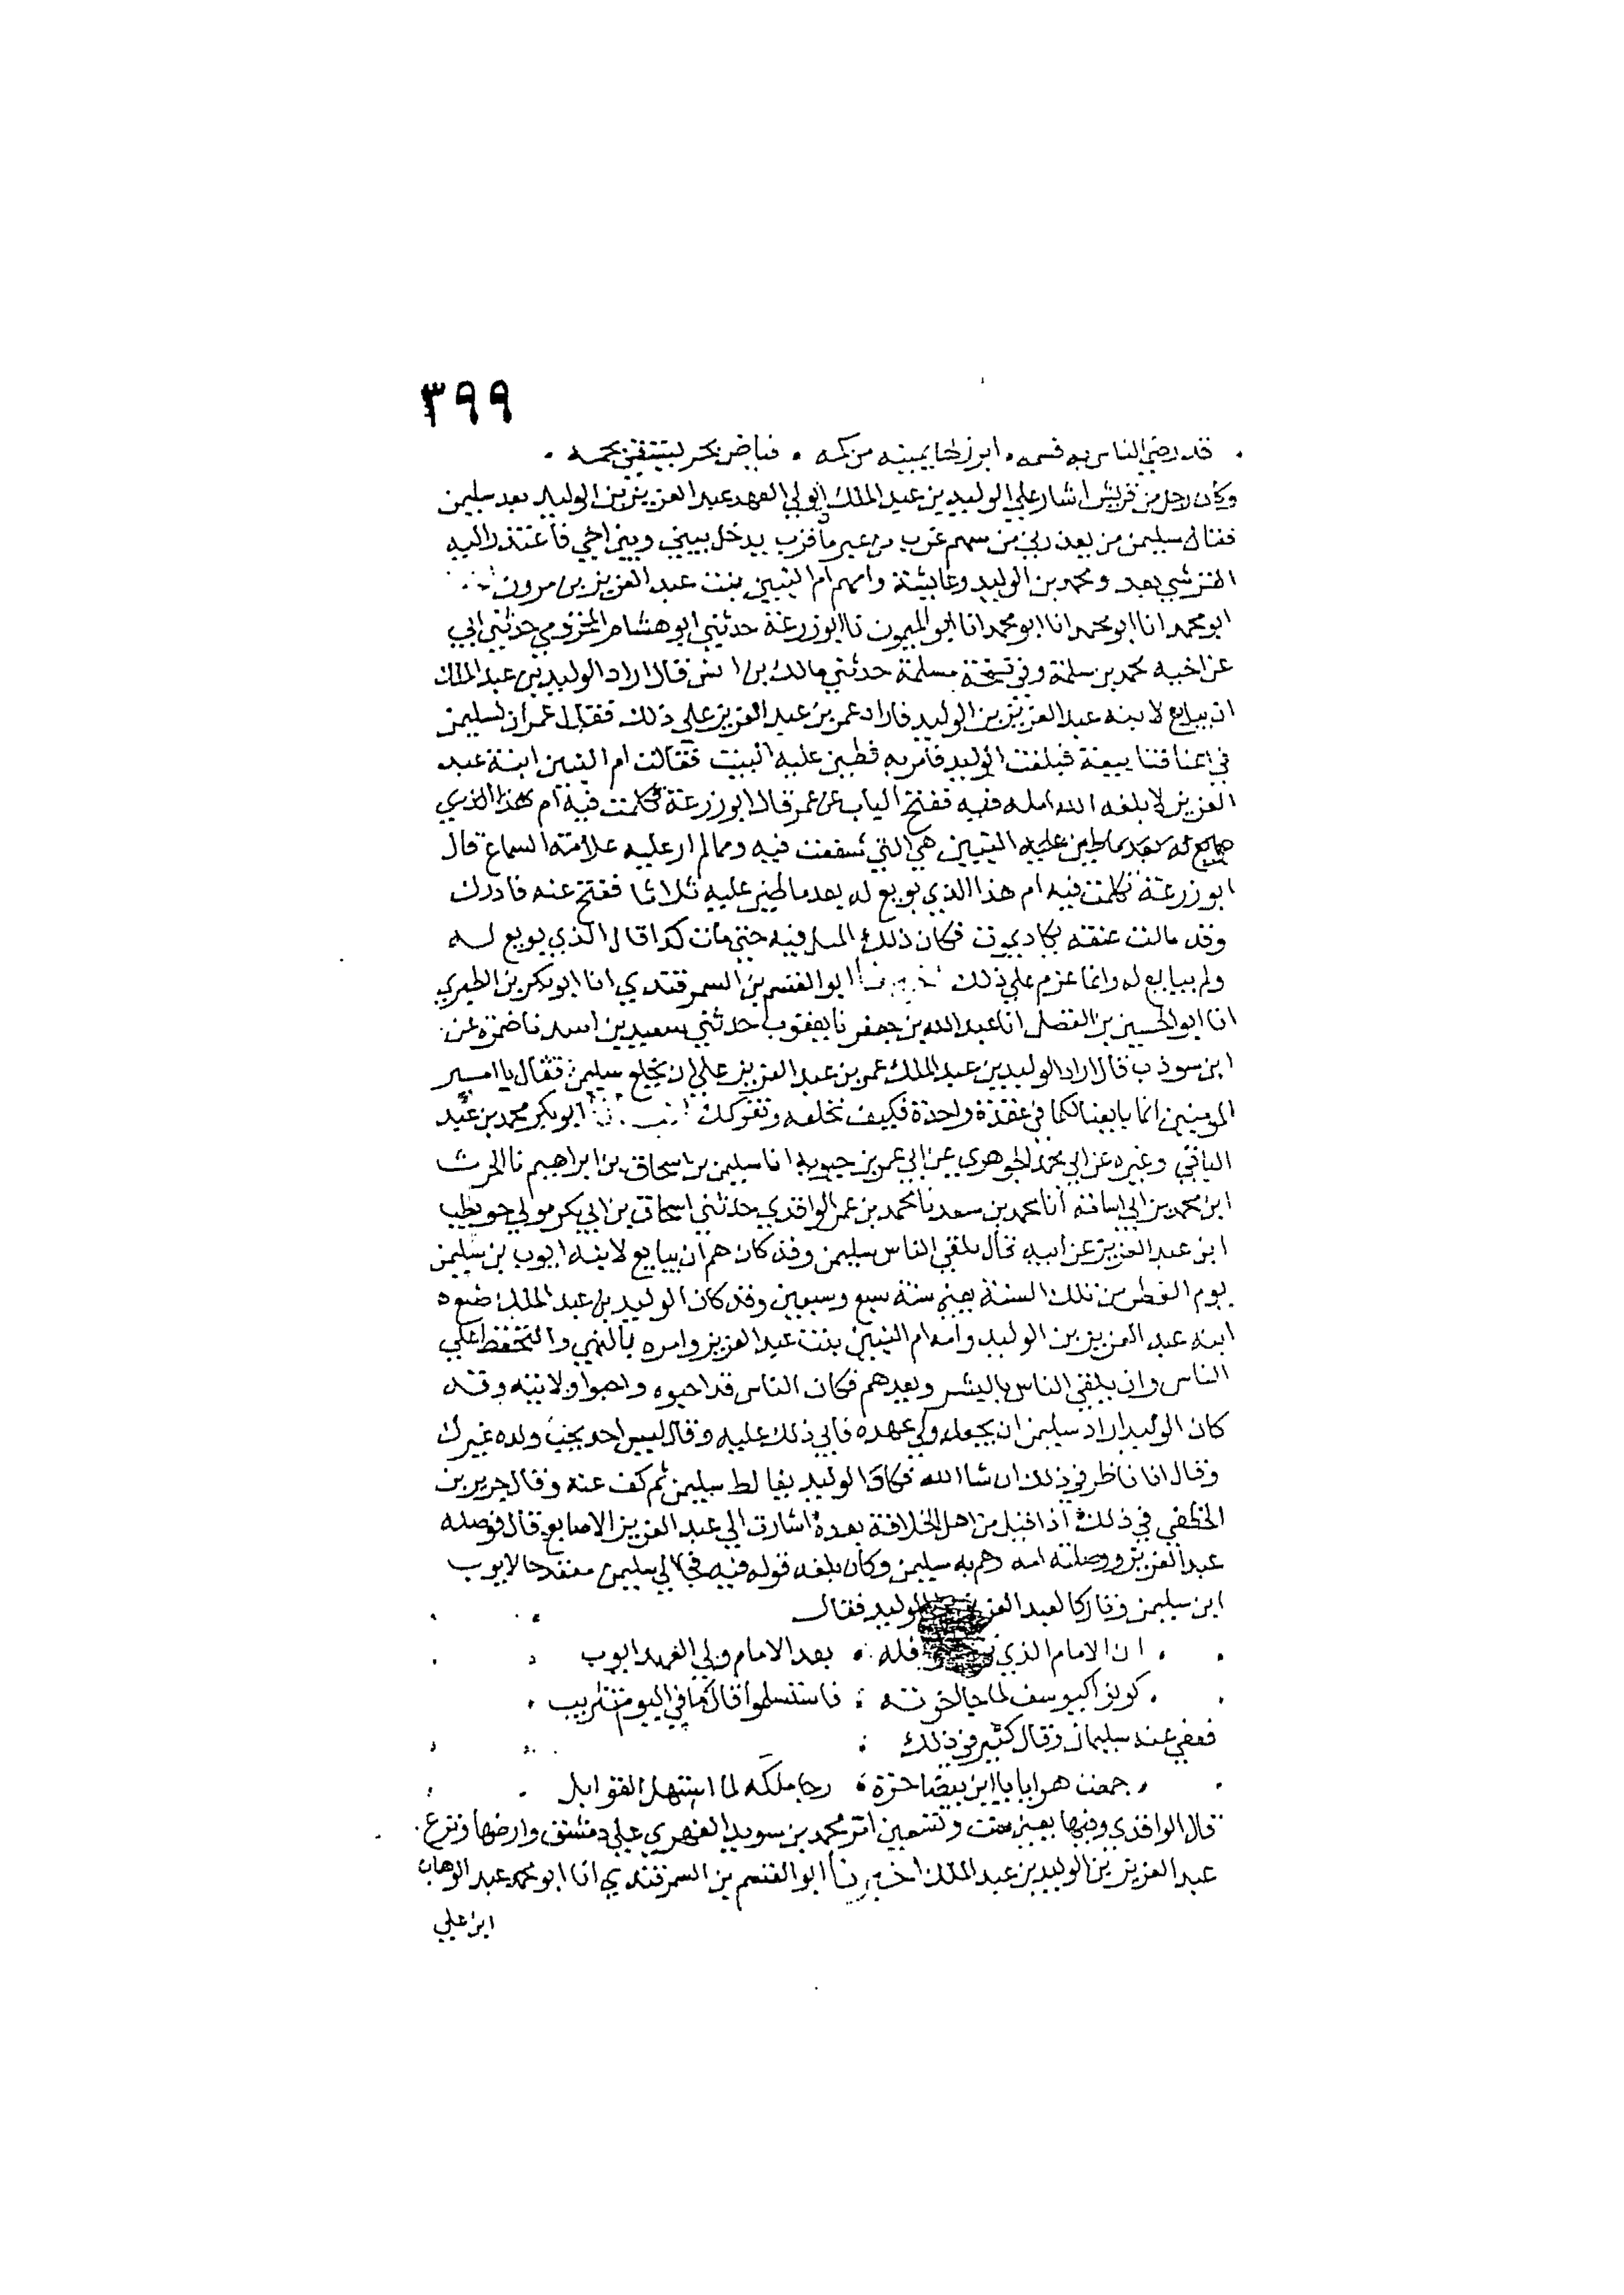 ٣٩٩
قد رضي الناس به فسمه . ابرز لنا يمينه من كمه .
وكان رجل من قريش اشار علي الوليد بن عبد الملك ان يولي العهد عبد العزيز بن الوليد بعد سليمن
فقال سليمن من بعد ربي من سهم غرب من غير ما قرب يدخل بيني وبين اخي فاعتذر اليه
القرشي بعد ومحمد بن الوليد وعايشة وامهم ام البنين بنت عبد العزيز بن مرون
ابو محمد انا ابو محمد انا ابو محمد انا ابو الميمون نا ابو زرعة حدثني ابو هشام المخزومي حدثني ابي
عن اخيه محمد بن سلمة وفي نسخة مسلمة حدثني مالك بن انس قال اراد الوليد بن عبد الملك
ان يبايع لابنه عبد العزيز بن الوليد فاراد عمر بن عبد العزيز علي ذلك فقال عمر ان لسليمن
في اعناقنا بيعة فبلغت الوليد فامر به فطين عليه البيت فقالت ام البنين ابنة عبد
العزيز لا بلغه الله امله فيه ففتح الباب عن عمر قال ابو زرعة كلمت فيه ام هذا الذي
بويع له بعد ما طين عليه البنين هي التي شفعت فيه ومما لم ار عليه علامة السماع قال
ابو زرعة كلمت فيه ام هذا الذي بويع له بعد ما طين عليه ثلاثا ففتح عنه فادرك
وقد مالت عنقه يكاد يموت فكان ذلك الميل فيه حتى مات كذا قال الذي بويع له
ولم يبايع له وانما عزم علي ذلك اخبرنا ابو القسم بن السمرقندي انا ابو بكر بن الطبري
انا ابو الحسين بن الفضل انا عبد الله بن جعفر نا يعقوب حدثني سعيد بن اسد نا ضمرة عن
ابن سوذب قال اراد الوليد بن عبد الملك عمر بن عبد العزيز علي ان يخلع سليمن فقال يا امير
المومنين انما بايعنا لكما في عقدة واحدة فكيف نخلعه ونتركك ابو بكر محمد بن عبد
الباقي وغيره عن ابي محمد الجوهري عن ابي عمر بن حيويه انا سليمن بن اسحاق بن ابراهيم نا الحرث
ابن محمد بن ابي اسامة انا محمد بن سعد نا محمد بن عمر الواقدي حدثني اسحاق بن ابي بكر مولي حويطب
ابن عبد العزيز عن ابيه قال بلقي الناس سليمن وقد كان هم ان يبايع لابنه ايوب بن سليمن
يوم الفطر من تلك السنة يعني سنة سبع وسبعين وقد كان الوليد بن عبد الملك
ابنه عبد العزيز بن الوليد وامه ام البنين بنت عبد العزيز وامره والتحفظ علي
الناس وان يلقي الناس بالبشر ويعدهم فكان الناس قد احبوه واحبوا ولايته وقد
كان الوليد اراد سليمن ان يجعله ولي عهده فابي ذلك عليه وقال ليس احد يجيب ولده غيرك
وقال انا ناظر في ذلك ان شا الله فكان الوليد يغالط سليمن ثم كف عنه وقال جرير بن
الخطفي في ذلك اذا قيل من اهل الخلافة بعده اشارت الي عبد العزيز الاصابع قال فوصله
عبد العزيز ووصلته امه وهم به سليمن وكان بلغه قوله فيه فجا الي سليمن معتمدحا لايوب
ابن سليمن وتاركا لعبد العزيز بن الوليد فقال
ان الامام الذي ترجي نوافله . بعد الامام ولي العهد ايوب
كونوا كيوسف لما جا اخوته . فاستسلموا قال ما في اليوم تثريب
فعفي عنه سليمان وقال كثير في ذلك
جمعت هوايا يا ابن بيضا حرة . رجا ملكه لما استهل القوابل
قال الواقدي وفيها يعني ست وتسعين امر محمد بن سويد الفهري علي دمشق وارضها ونزع
عبد العزيز بن الوليد بن عبد الملك اخبرنا ابو القسم بن السمرقندي انا ابو محمد عبد الوهاب
ابن علي